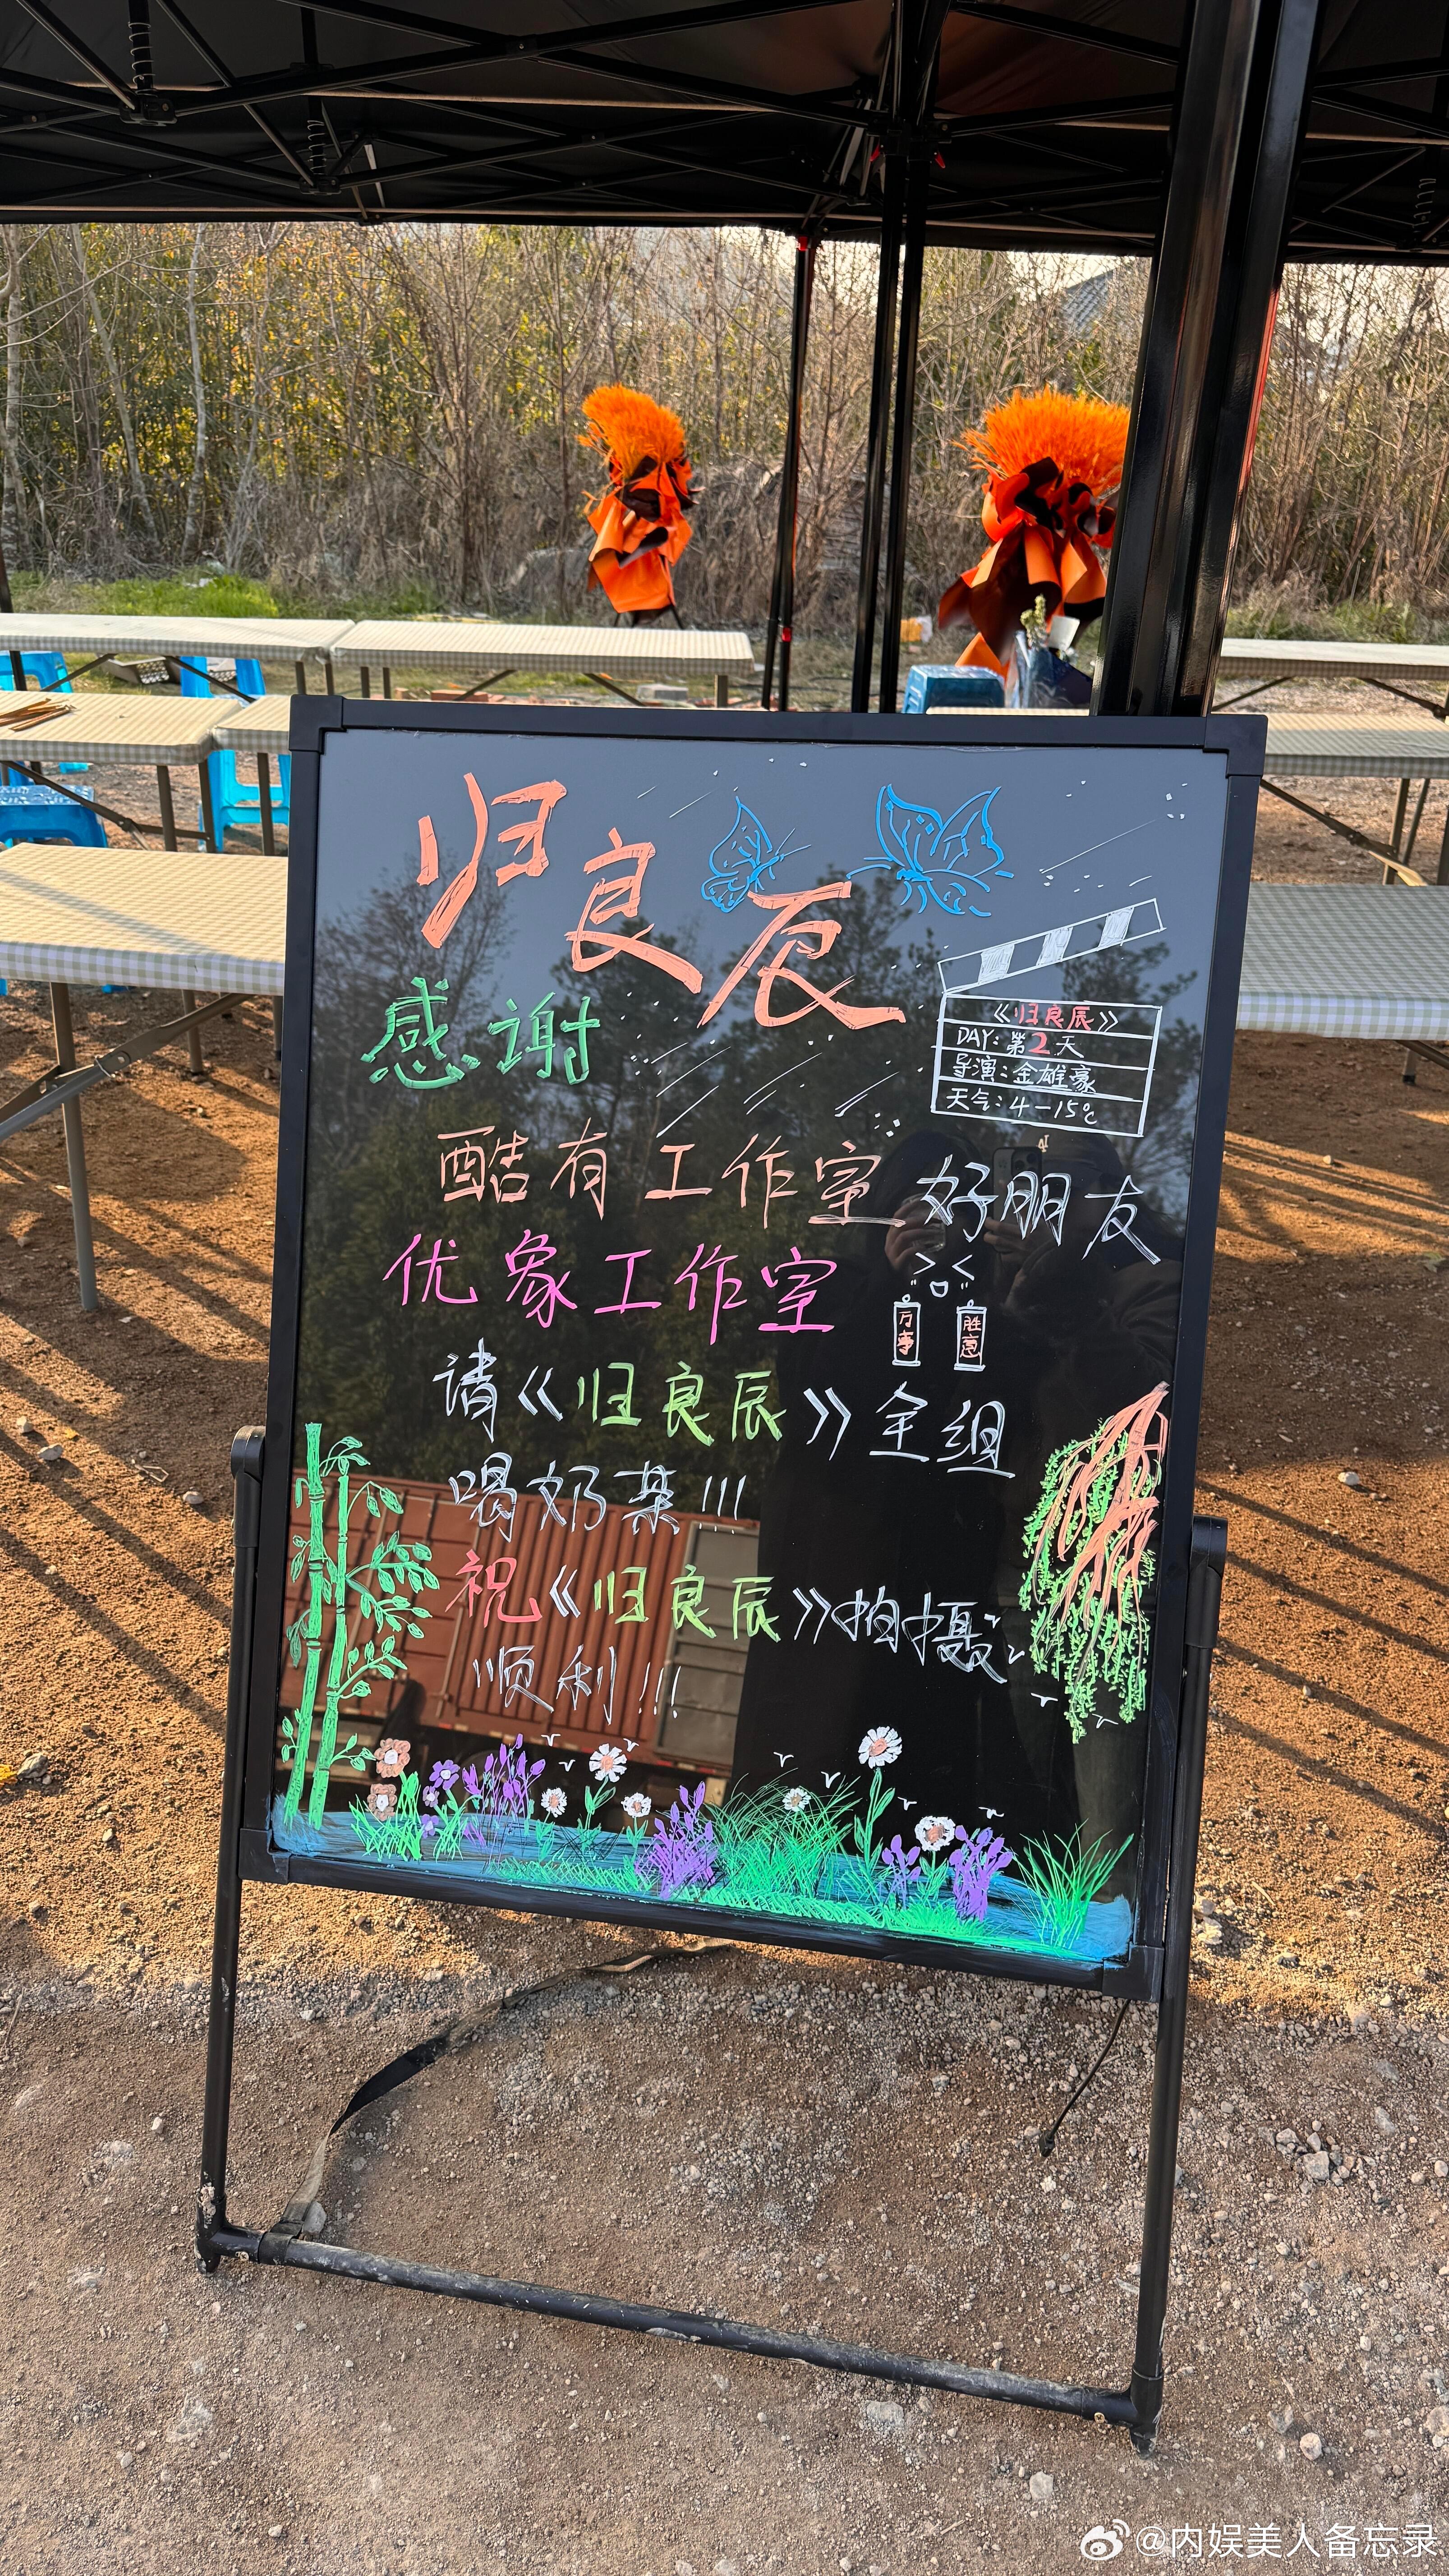 归良辰
《归良辰》
DAY:第2天
导演:金雄豪
天气:4-15℃
感谢
酷有工作室 好朋友
优象工作室
万事
胜意
请《归良辰》全组
喝奶茶!!!
祝《归良辰》拍摄
顺利!!!
@内娱美人备忘录